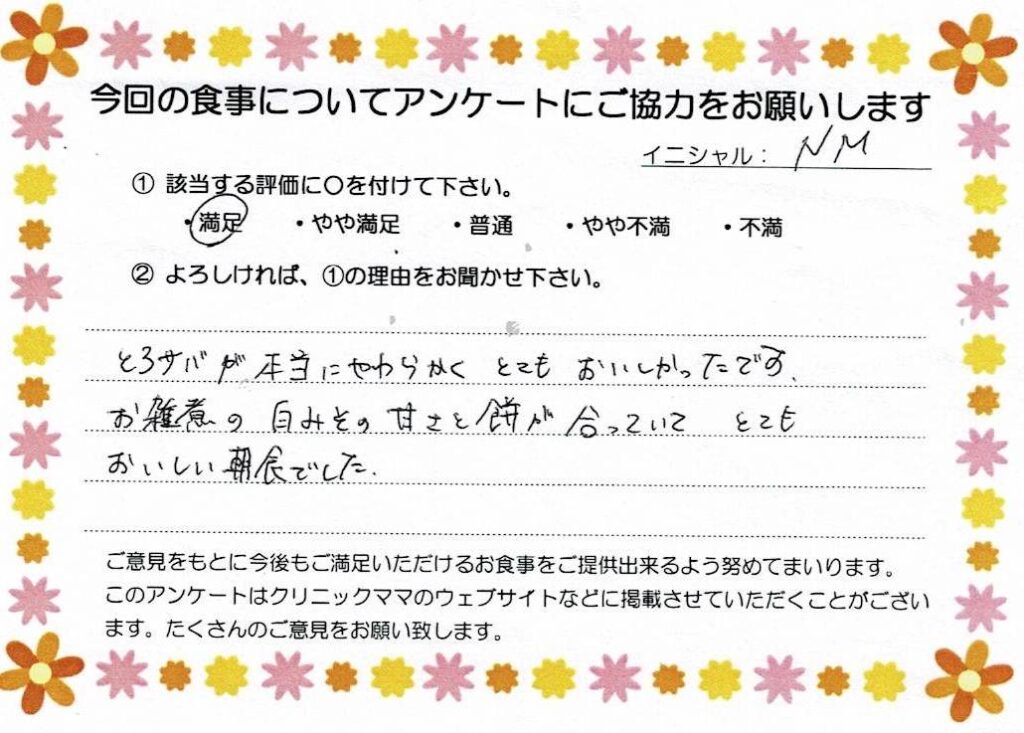 今回の食事についてアンケートにご協力をお願いします
イニシャル： NM
① 該当する評価に〇を付けて下さい。
・満足 ・やや満足 ・普通 ・やや不満 ・不満
② よろしければ、①の理由をお聞かせ下さい。
とろサバが本当にやわらかく とても おいしかったです.
お雑煮の 白みその 甘さと餅が 合っていて とても
おいしい朝食でした.
ご意見をもとに今後もご満足いただけるお食事をご提供出来るよう努めてまいります。
このアンケートはクリニックママのウェブサイトなどに掲載させていただくことがござい
ます。たくさんのご意見をお願い致します。